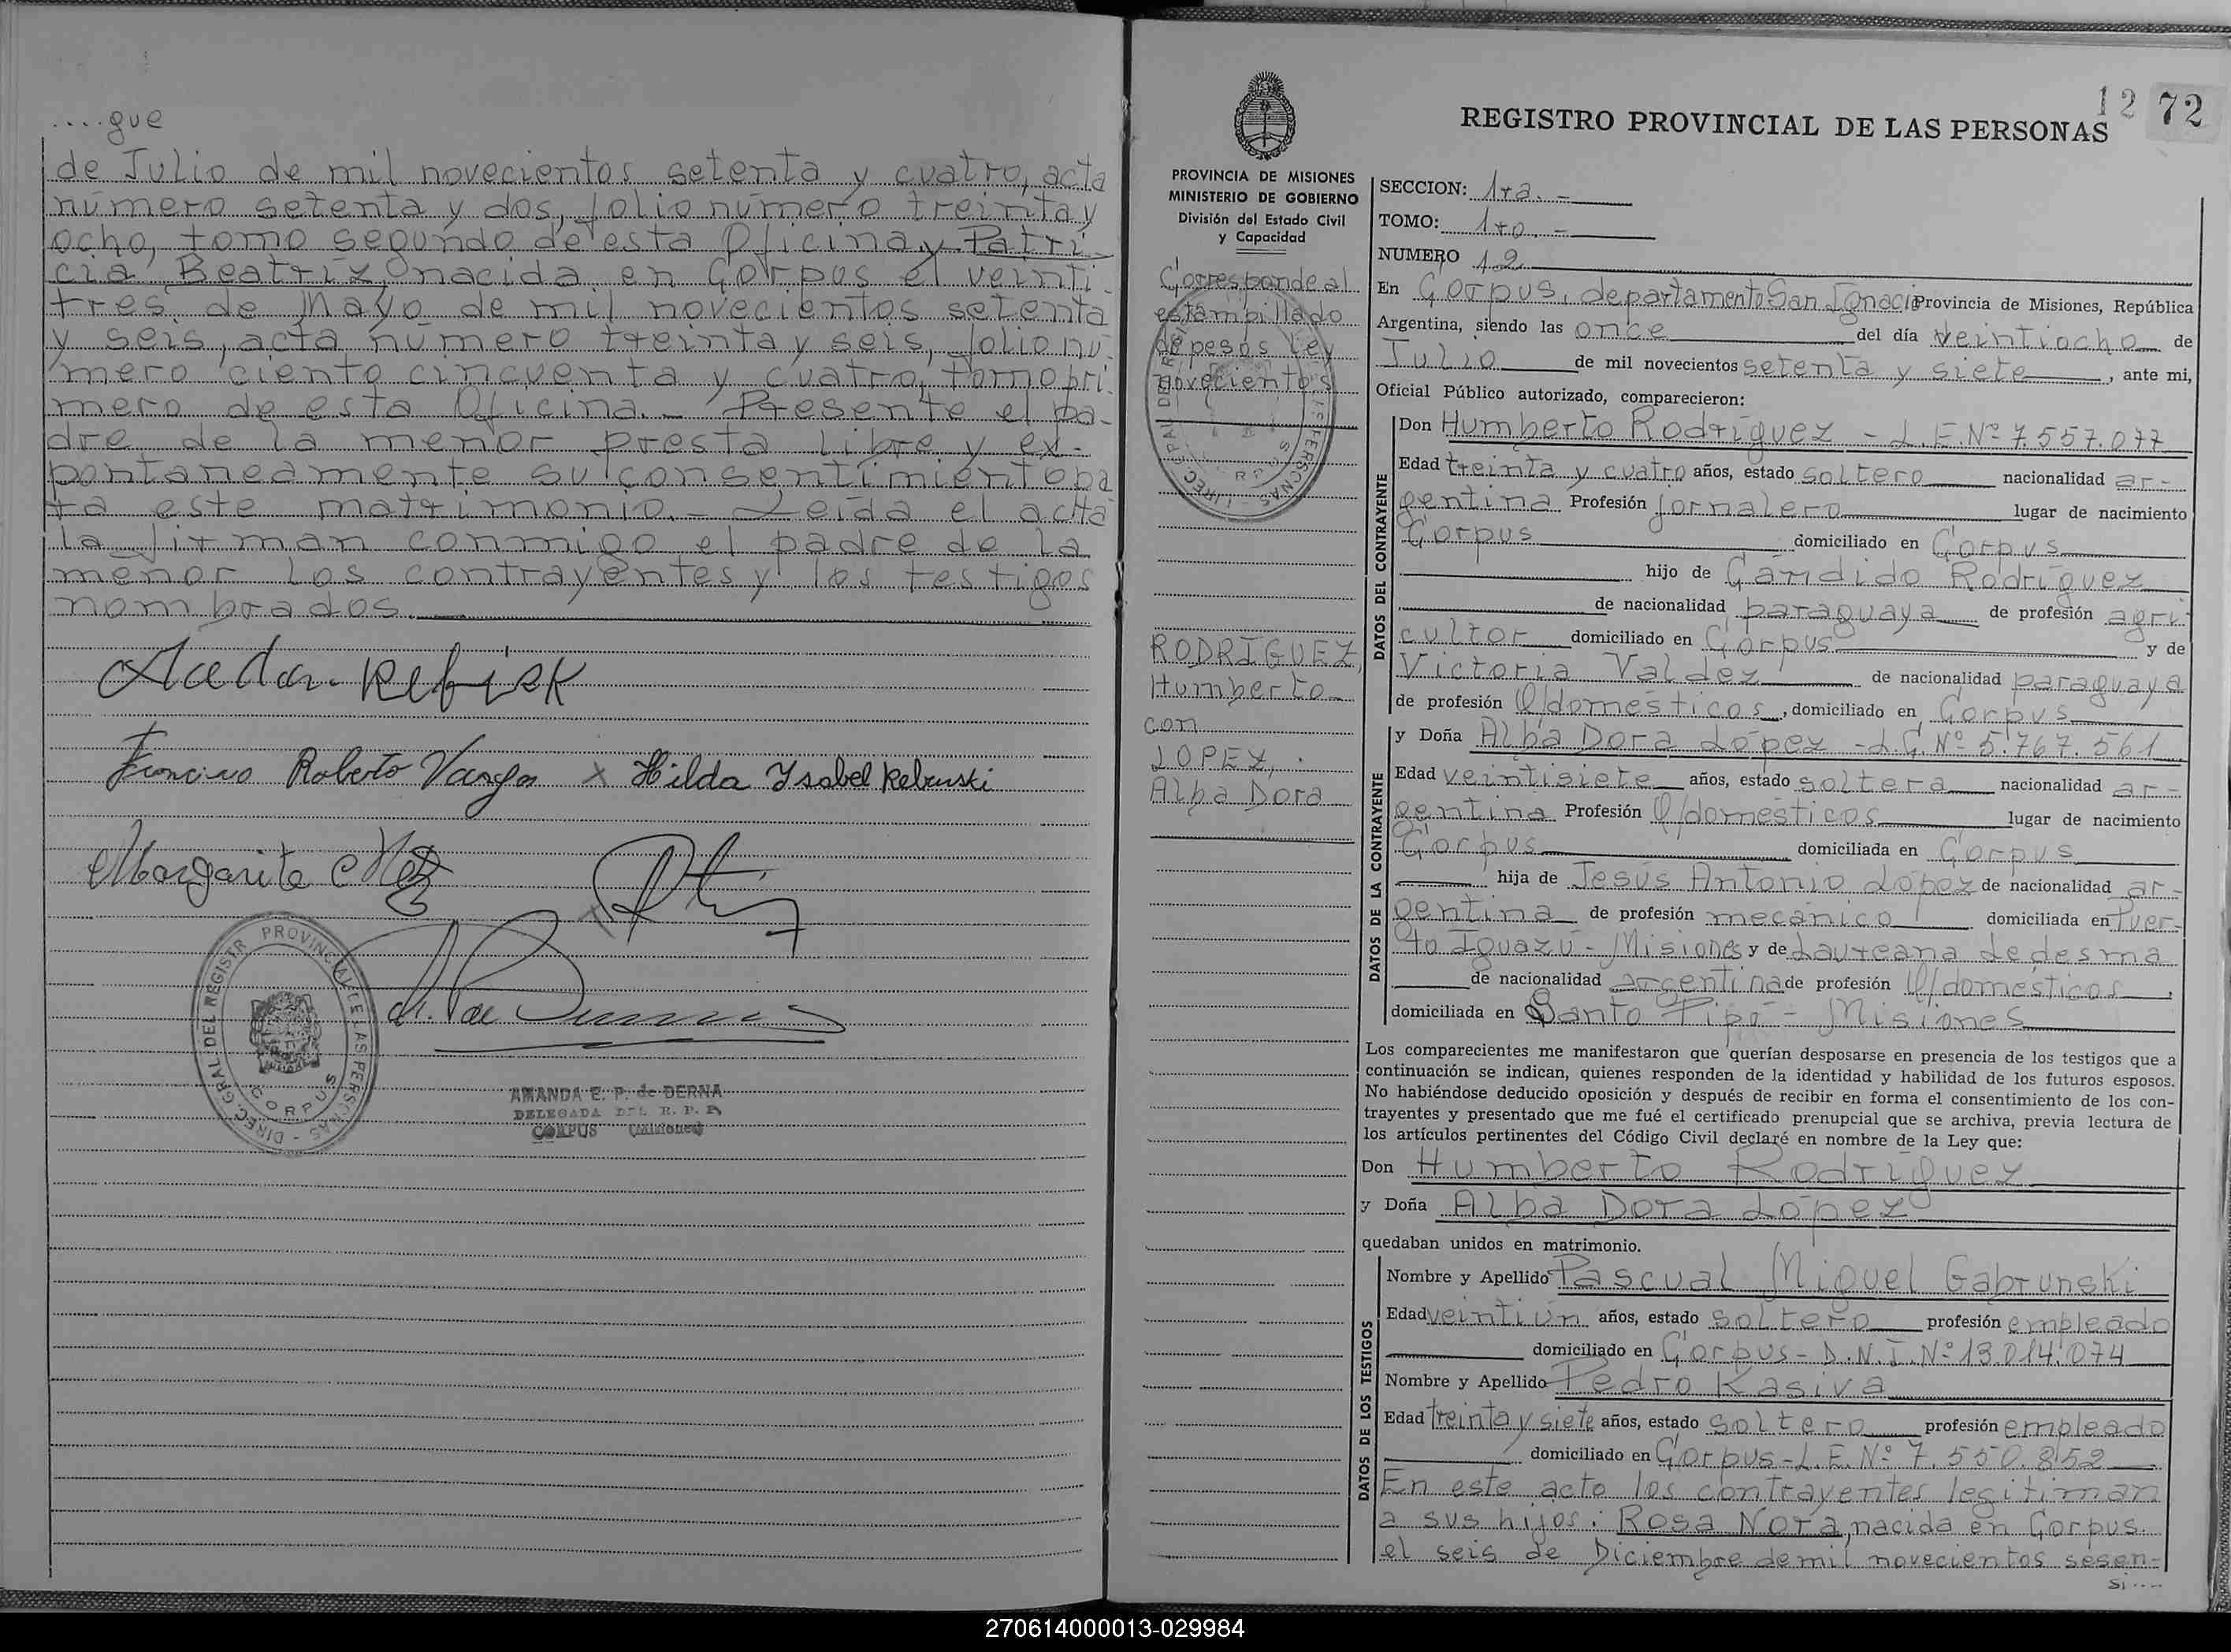 ....gue
de Julio de mil novecientos setenta y cuatro, acta
número setenta y dos, folio número treinta y
ocho, tomo segundo de esta Oficina y Patri-
cia Beatriz, nacida en Corpus el veinti-
tres de Mayo de mil novecientos setenta
y seis, acta número treinta y seis, folio nú-
mero ciento cincuenta y cuatro, tomo pri-
mero de esta Oficina.- Presente el pa-
dre de la menor presta libre y ex-
pontaneamente su consentimiento pa
ra este matrimonio.- Leída el acta
la firman conmigo el padre de la
menor los contrayentes y los testigos
nombrados
Roberto Vargas x Hilda Ysabel Rebruski
Margarita
DIREC. GRAL DEL REGISTR PROVINCIAL DE LAS PERSONAS - CORPUS
AMANDA E. P. de DERNA
DELEGADA DEL R. P. P.
CORPUS (Misiones)
12 72
REGISTRO PROVINCIAL DE LAS PERSONAS
PROVINCIA DE MISIONES
MINISTERIO DE GOBIERNO
División del Estado Civil
y Capacidad
Corresponde al
estampillado
de pesos Ley
novecientos
RODRIGUEZ,
Humberto
con
LOPEZ,
Alba Dora
SECCION: 1ra.-
TOMO: 1ro.-
NUMERO 12
En Corpus, departamento San Ignacio Provincia de Misiones, República
Argentina, siendo las once del día veintiocho de
Julio de mil novecientos setenta y siete, ante mi,
Oficial Público autorizado, comparecieron:
DATOS DEL CONTRAYENTE
Don Humberto Rodríguez - L.E.Nº 7.557.077
Edad treinta y cuatro años, estado soltero nacionalidad ar-
gentina Profesión jornalero lugar de nacimiento
Corpus domiciliado en Corpus
hijo de Cándido Rodríguez
de nacionalidad paraguaya de profesión agri-
cultor domiciliado en Corpus y de
Victoria Valdez de nacionalidad paraguaya
de profesión Q/domésticos, domiciliado en Corpus
DATOS DE LA CONTRAYENTE
y Doña Alba Dora López - L.C. Nº 5.767.561
Edad veintisiete años, estado soltera nacionalidad ar-
gentina Profesión Q/domésticos lugar de nacimiento
Corpus domiciliada en Corpus
hija de Jesús Antonio López de nacionalidad ar-
gentina de profesión mecánico domiciliada en Puer-
to Iguazú - Misiones y de Laureana Ledesma
de nacionalidad argentina de profesión Q/domésticos,
domiciliada en Santo Pipó - Misiones
Los comparecientes me manifestaron que querían desposarse en presencia de los testigos que a
continuación se indican, quienes responden de la identidad y habilidad de los futuros esposos.
No habiéndose deducido oposición y después de recibir en forma el consentimiento de los con-
trayentes y presentado que me fué el certificado prenupcial que se archiva, previa lectura de
los artículos pertinentes del Código Civil declaré en nombre de la Ley que:
Don Humberto Rodríguez
y Doña Alba Dora López
quedaban unidos en matrimonio.
DATOS DE LOS TESTIGOS
Nombre y Apellido Pascual Miguel Gabrunski
Edad veintiún años, estado soltero profesión empleado
domiciliado en Corpus - D.N.I. Nº 13.014.074
Nombre y Apellido Pedro Kasiva
Edad treinta y siete años, estado soltero profesión empleado
domiciliado en Corpus - L.E. Nº 7.550.852
En este acto los contrayentes legitiman
a sus hijos: Rosa Nora, nacida en Corpus
el seis de Diciembre de mil novecientos sesen-
si....
270614000013-029984